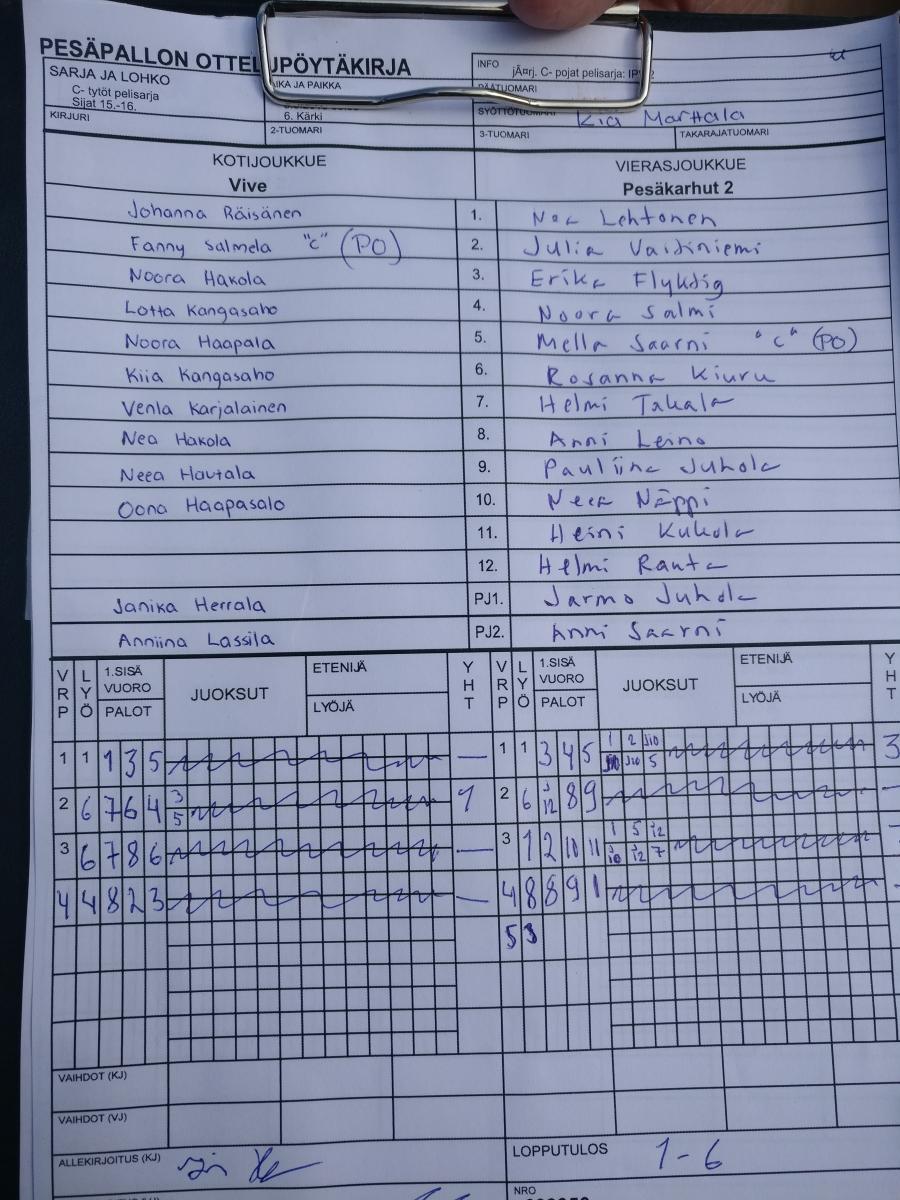 PESÄPALLON OTTELUPÖYTÄKIRJA
SARJA JA LOHKO
C- tytöt pelisarja
Sijat 15.-16.
AIKA JA PAIKKA
6. Kärki
INFO
jÃ¤rj. C- pojat pelisarja:
PÄÄTUOMARI
SYÖTTÖTUOMARI Kia Marttala
KIRJURI
2-TUOMARI
3-TUOMARI
TAKARAJATUOMARI
KOTIJOUKKUE VIERASJOUKKUE
Vive Pesäkarhut 2
Johanna Räisänen 1. Noa Lehtonen
Fanny Salmela "C" (PO) 2. Julia Vainiemi
Noora Hakola 3. Erika
Lotta Kangasaho 4. Noora Salmi
Noora Haapala 5. Mella Saarni "C" (PO)
Kiia Kangasaho 6. Rosanna Kiuru
Venla Karjalainen 7. Helmi Takala
Nea Hakola 8. Anni Leino
Neea Hautala 9. Pauliina Juhola
Oona Haapasalo 10. Neea Näppi
11. Heini Kukola
12. Helmi Ranta
Janika Herrala PJ1. Jarmo Juhola
Anniina Lassila PJ2. Anni Saarni
VRP LYÖ 1.SISÄ VUORO PALOT JUOKSUT ETENIJÄ LYÖJÄ YHT VRP LYÖ 1.SISÄ VUORO PALOT JUOKSUT ETENIJÄ LYÖJÄ YHT
1 1 1 3 5 — 1 1 3 4 5 3
2 6 7 6 4 3 5 1 2 6 8 9 —
3 6 7 8 6 — 3 1 2 10 11
4 4 8 2 3 — 4 8 8 9 1 —
5 3
VAIHDOT (KJ)
VAIHDOT (VJ)
ALLEKIRJOITUS (KJ) LOPPUTULOS 1-6
NRO